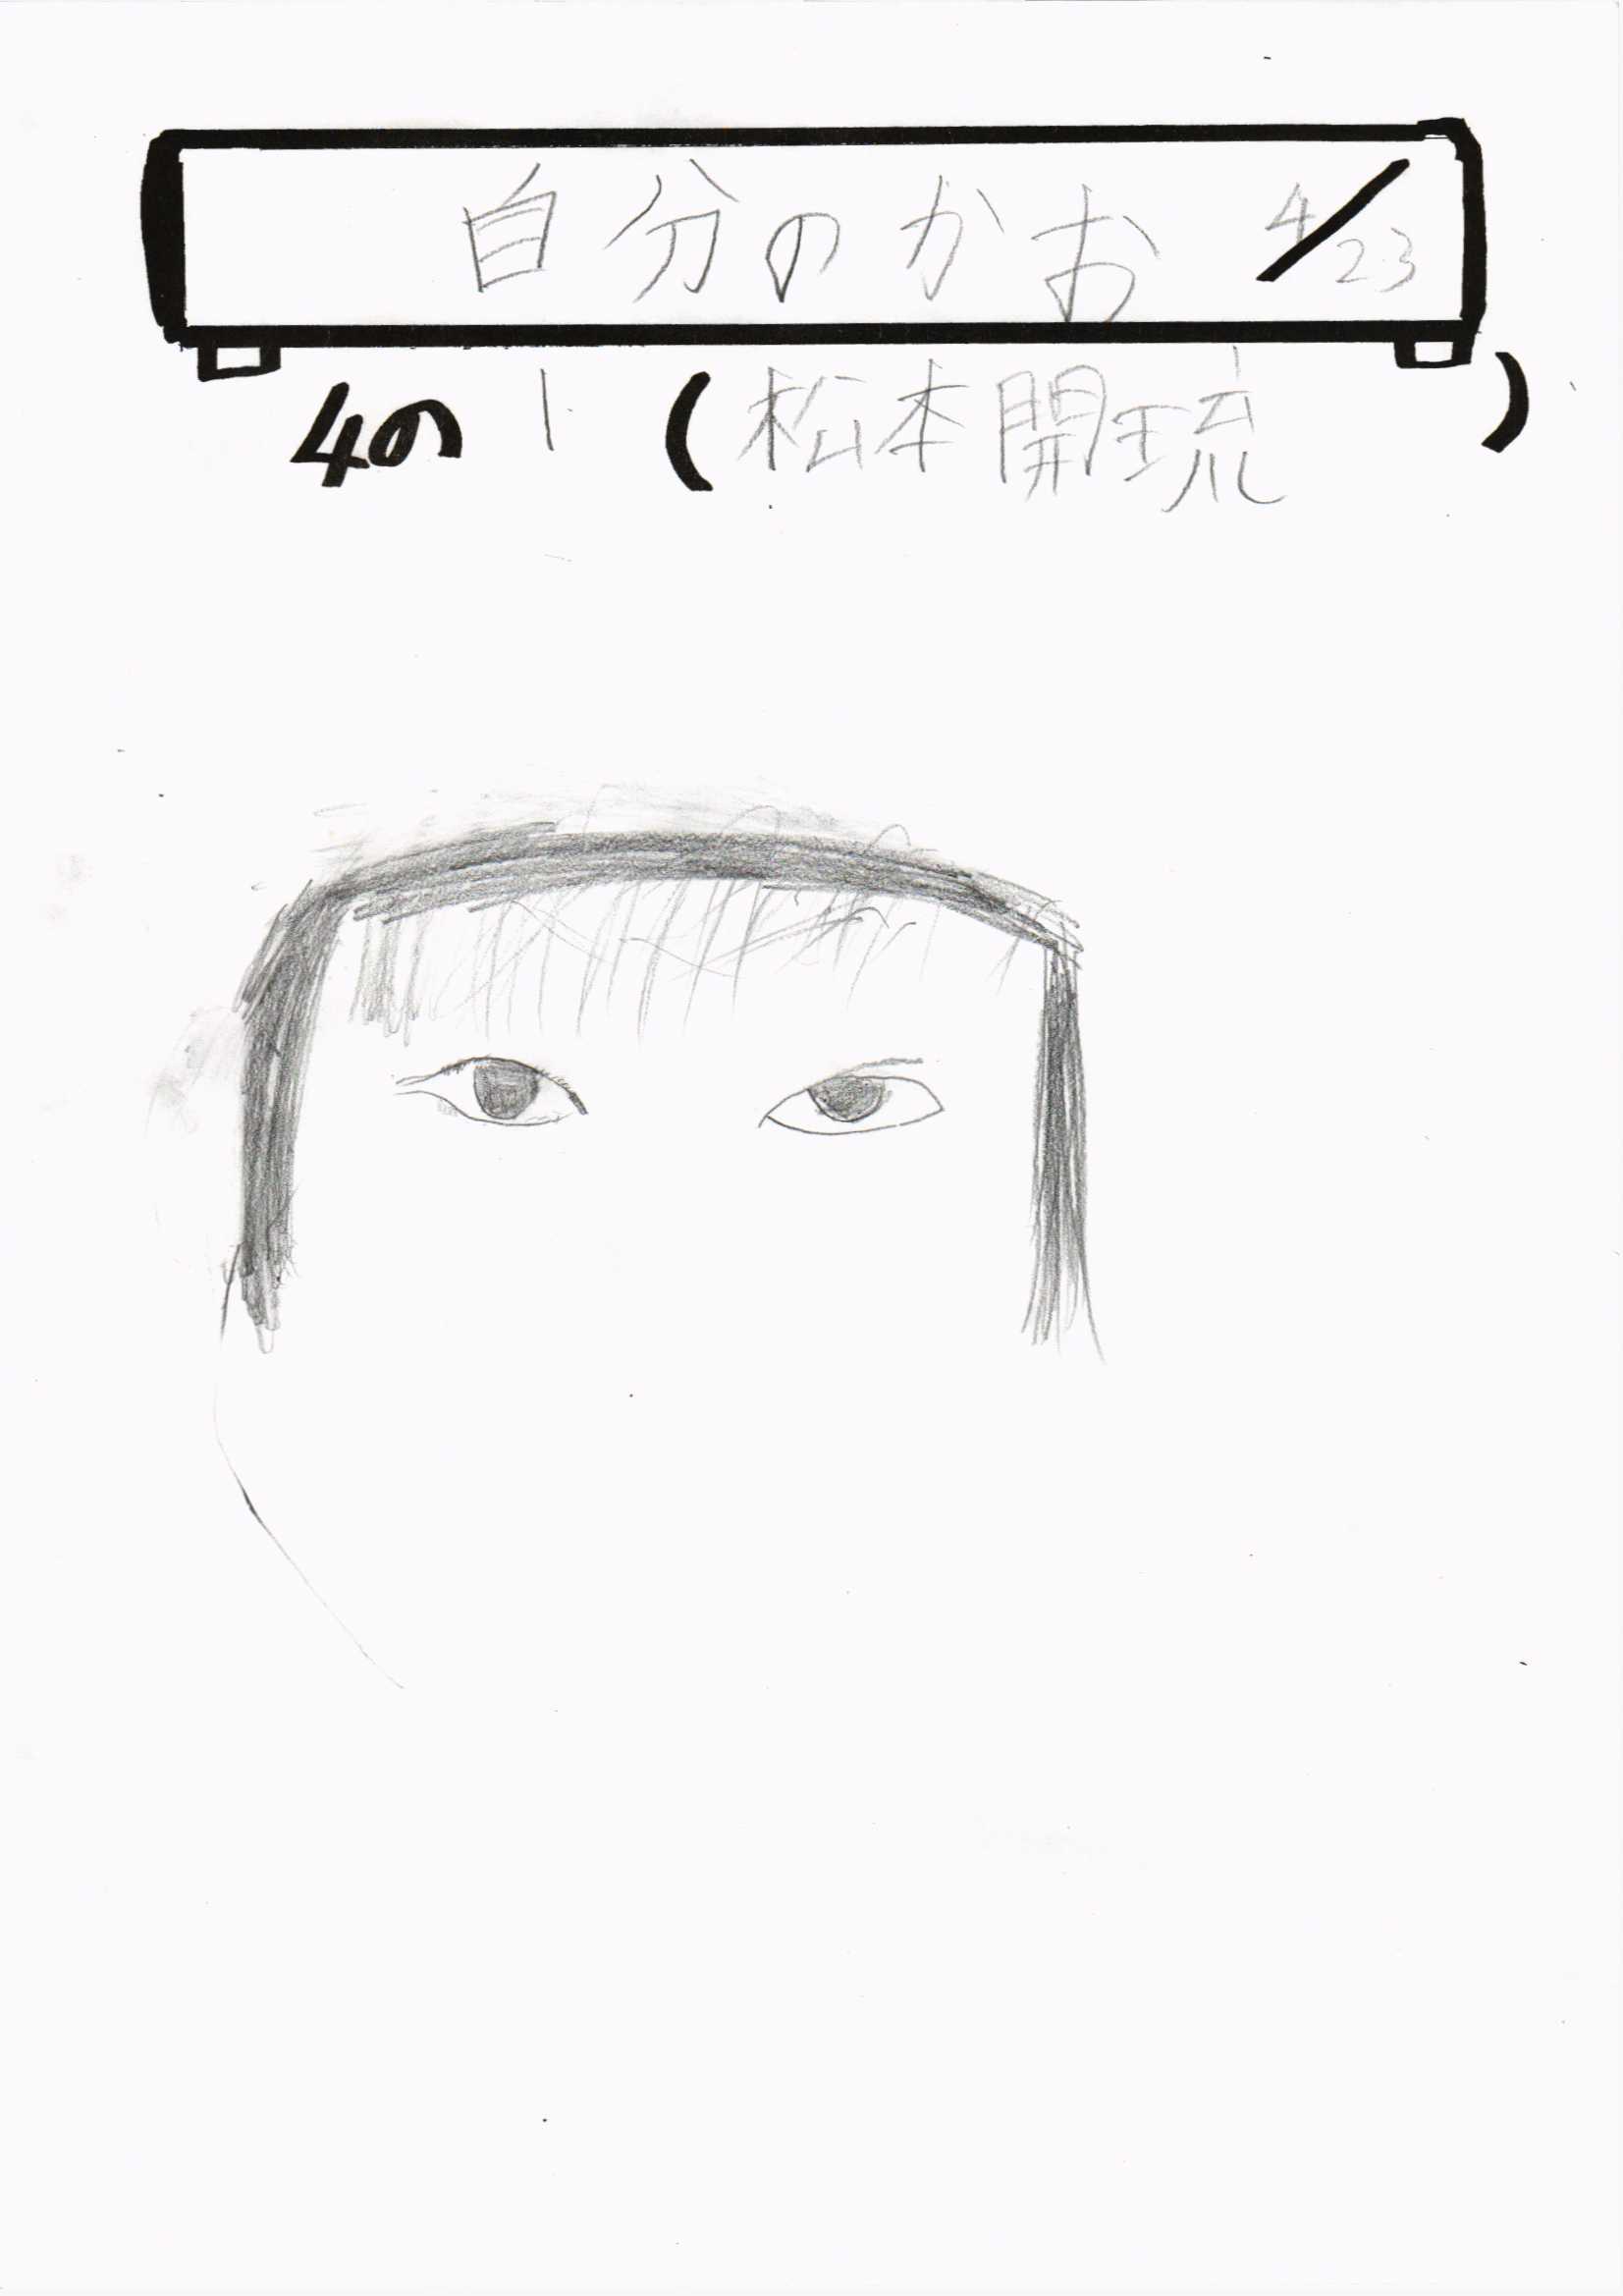 自分のかお 4/23
4の1(松本開琉)